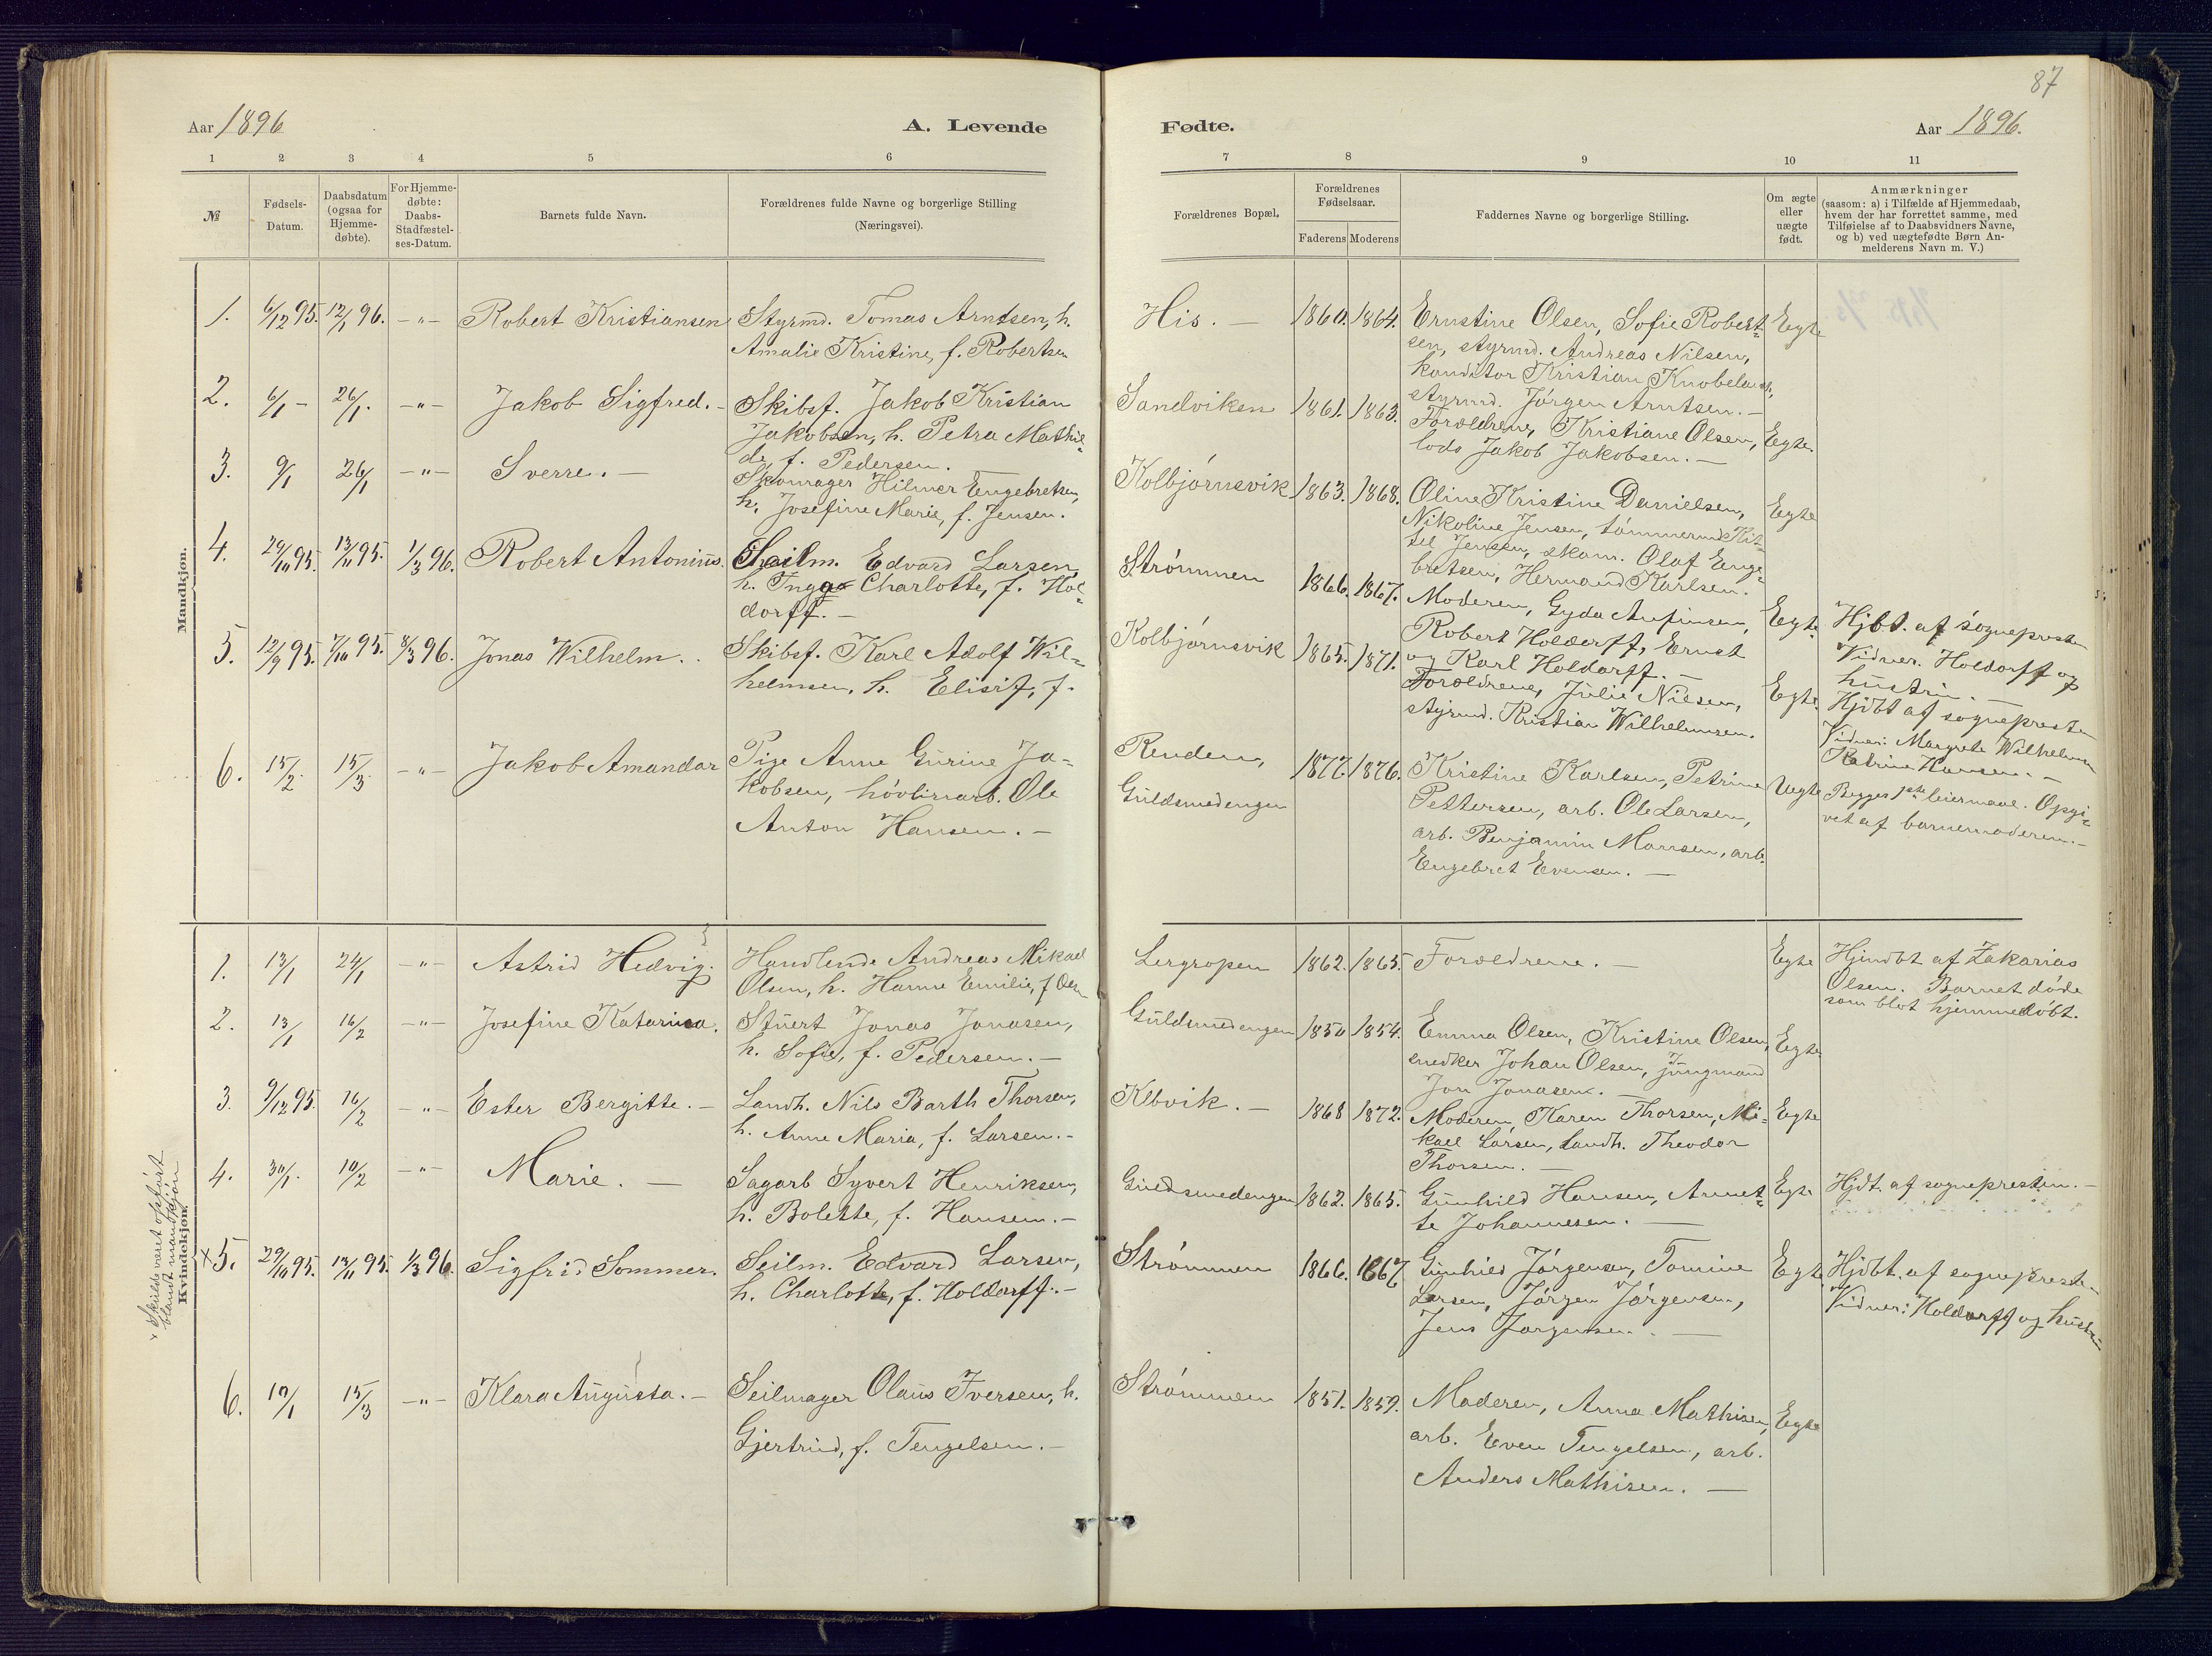 87
Aar 1896
A. Levende
Fødte.
Aar 1896.
1 2 3 4 5 6 7 8 9 10 11
№
Fødsels-
Datum.
Daabsdatum
(ogsaa for
Hjemme-
døbte).
For Hjemme-
døbte:
Daabs-
Stadfæstel-
ses-Datum.
Barnets fulde Navn.
Forældrenes fulde Navne og borgerlige Stilling
(Næringsvei).
Forældrenes Bopæl.
Forældrenes
Fødselsaar.
Faderens Moderens
Faddernes Navne og borgerlige Stilling.
Om ægte
eller
uægte
født.
Anmærkninger
(saasom: a) i Tilfælde af Hjemmedaab,
hvem der har forrettet samme, med
Tilføielse af to Daabsvidners Navne,
og b) ved uægtefødte Børn An-
melderens Navn m. V.)
Mandkjøn.
1. 6/12 95. 12/1 96. -"- Robert Kristiansen
Styrmd. Tomas Arntsen, h.
Amalie Kristine, f. Robertsen
His. — 1860. 1864.
Ernstine Olsen, Sofie Robert-
sen, styrmd. Andreas Nilsen,
konditor Kristian
styrmd. Jörgen Arntsen. —
Egte
2. 6/1 - 26/1. -"- Jakob Sigfred. -
Skibsf. Jakob Kristian
Jakobsen, h. Petra Mathil-
de f. Pedersen.
Sandviken 1861. 1863.
Foroeldrene, Kristiane Olsen,
lods Jakob Jakobsen. —
Egte.
3. 9/1 26/1 -"- Sverre. —
Skomager Hilmer Engebretsen,
h. Josefine Marie, f. Jensen.
Kolbjörnsvik 1863. 1868.
Oline Kristine Danielsen,
Nikoline Jensen, tömmermd Kit-
tel Jensen, skom. Olaf Enge-
bretsen, Hermand Karlsen.
Egte
4. 29/10 95. 13/11 95. 1/3 96. Robert Antonius.
Seilm. Edvard Larsen,
h. Charlotte, f. Hol-
dorff. —
Strømmen 1866. 1867.
Moderen, Gyda Anfinsen,
Robert Holdorff, Ernst
og Karl Holdorff. —
Egte.
Hjbt. af sogneprosten
Vidner. Holdorff og
hustru. —
5. 12/9 95. 7/10 95. 8/3 96. Jonas Wilhelm.
Skibsf. Karl Adolf Wil-
helmsen, h. Elisif, f.
Kolbjörnsvik 1865. 1871.
Foroeldrene, Julie Nilsen,
styrmd. Kristian Wilhelmsen.
Egte.
Hjdbt af sognepresten
Vidner: Margrete Wilhelmsen
Katrine Hansen. —
6. 15/2. 15/3. -"- Jakob Amandar
Pige Anne Gurine Ja-
kobsen, hövleriarb. Ole
Anton Hansen. —
Renden,
Guldsmedengen
1877. 1876.
Kristine Karlsen, Petrine
Pettersen, arb. Ole Larsen,
arb. Benjamin Monsen, arb.
Engebret Evensen. —
Uegte
Begges 1ste leiermaal. Opgi-
vet af barnemoderen. —
Kvindekjøn.
× Skulde været opført
blandt mandkjøn
1. 13/1 24/1 -"- Astrid Hedvig.
Handlende Andreas Mikael
Olsen, h. Hanne Emilie, f Olsen
Lergropen 1862. 1865.
Foroeldrene. —
Egte
Hjmdbt af Zakarias
Olsen. Barnet döde
som blot hjemmedöbt.
2. 13/1 16/2 -"- Josefine Katarina.
Stuert Jonas Jonasen,
h. Sofie, f. Pedersen. —
Guldsmedengen 1850 1854.
Emma Olsen, Kristine Olsen,
snedker Johan Olsen, jungmand
Jon Jonasen. —
Egte
3. 9/12 95. 16/2 -"- Ester Bergitte. —
Landh. Nils Barth Thorsen,
h. Anne Maria, f. Larsen. —
Klbvik. — 1868 1872.
Moderen, Karen Thorsen, Mi-
kael Larsen, Landh. Theodor
Thorsen. —
Egte
4. 30/1. 10/2 -"- Marie. —
Sagarb Syvert Henriksen,
h. Bolette, f. Hansen. —
Guldsmedengen 1862. 1865.
Gunhild Hansen, Annet-
te Johannesen. —
Egte
Hjdt. af sogneprestin. —
×5. 29/10 95. 13/11 95. 1/3 96. Sigfrid Sommer.
Seilm. Edvard Larsen,
h. Charlotte, f. Holdorff. —
Strømmen 1866. 1867.
Gunhild Jörgensen, Tomine
Larsen, Jörgen Jörgensen,
Jens Jörgensen. —
Egte
Hjdbt. af sogneprest-
Vidner: Holdorff og hustru
6. 10/1 15/3 -"- Klara Augusta. —
Seilmager Olaus Iversen, h.
Gjertrud, f. Tengelsen. —
Strømmen 1851. 1859.
Moderen, Anna Mathisen,
arb. Even Tengelsen, arb.
Anders Mathisen. —
Egte